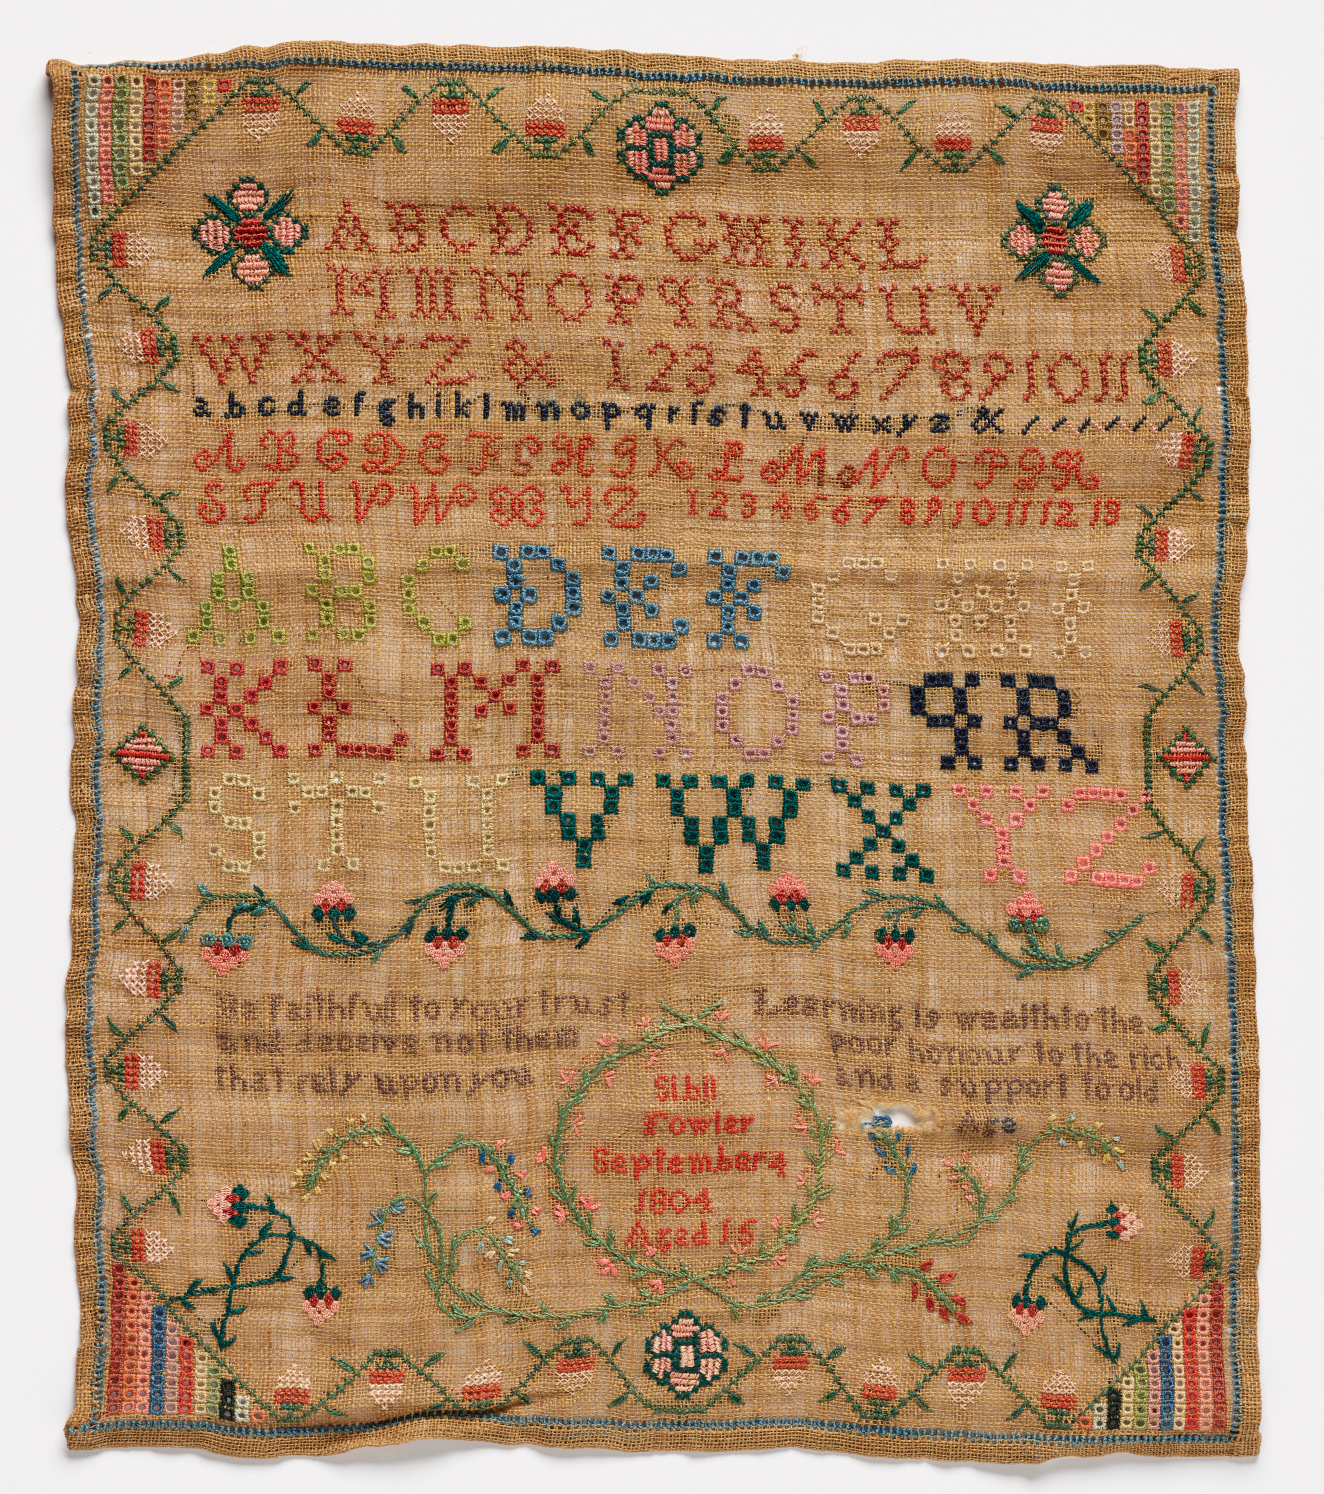 A B C D E F G H I K L
M M N O P Q R S T U V
W X Y Z & 1 2 3 4 5 6 7 8 9 10 11
a b c d e f g h i k l m n o p q r ſ s t u v w x y z &
A B C D E F G H I K L M N O P Q R
S T U V W X Y Z 1 2 3 4 5 6 7 8 9 10 11 12 13
A B C D E F G H I
K L M N O P Q R
S T U V W X Y Z
Be faithful to your trust
and deceive not them
that rely upon you
Learning is wealth to the
poor honour to the rich
and a support to old
Age
Sibil
Fowler
September
1804
Aged 15